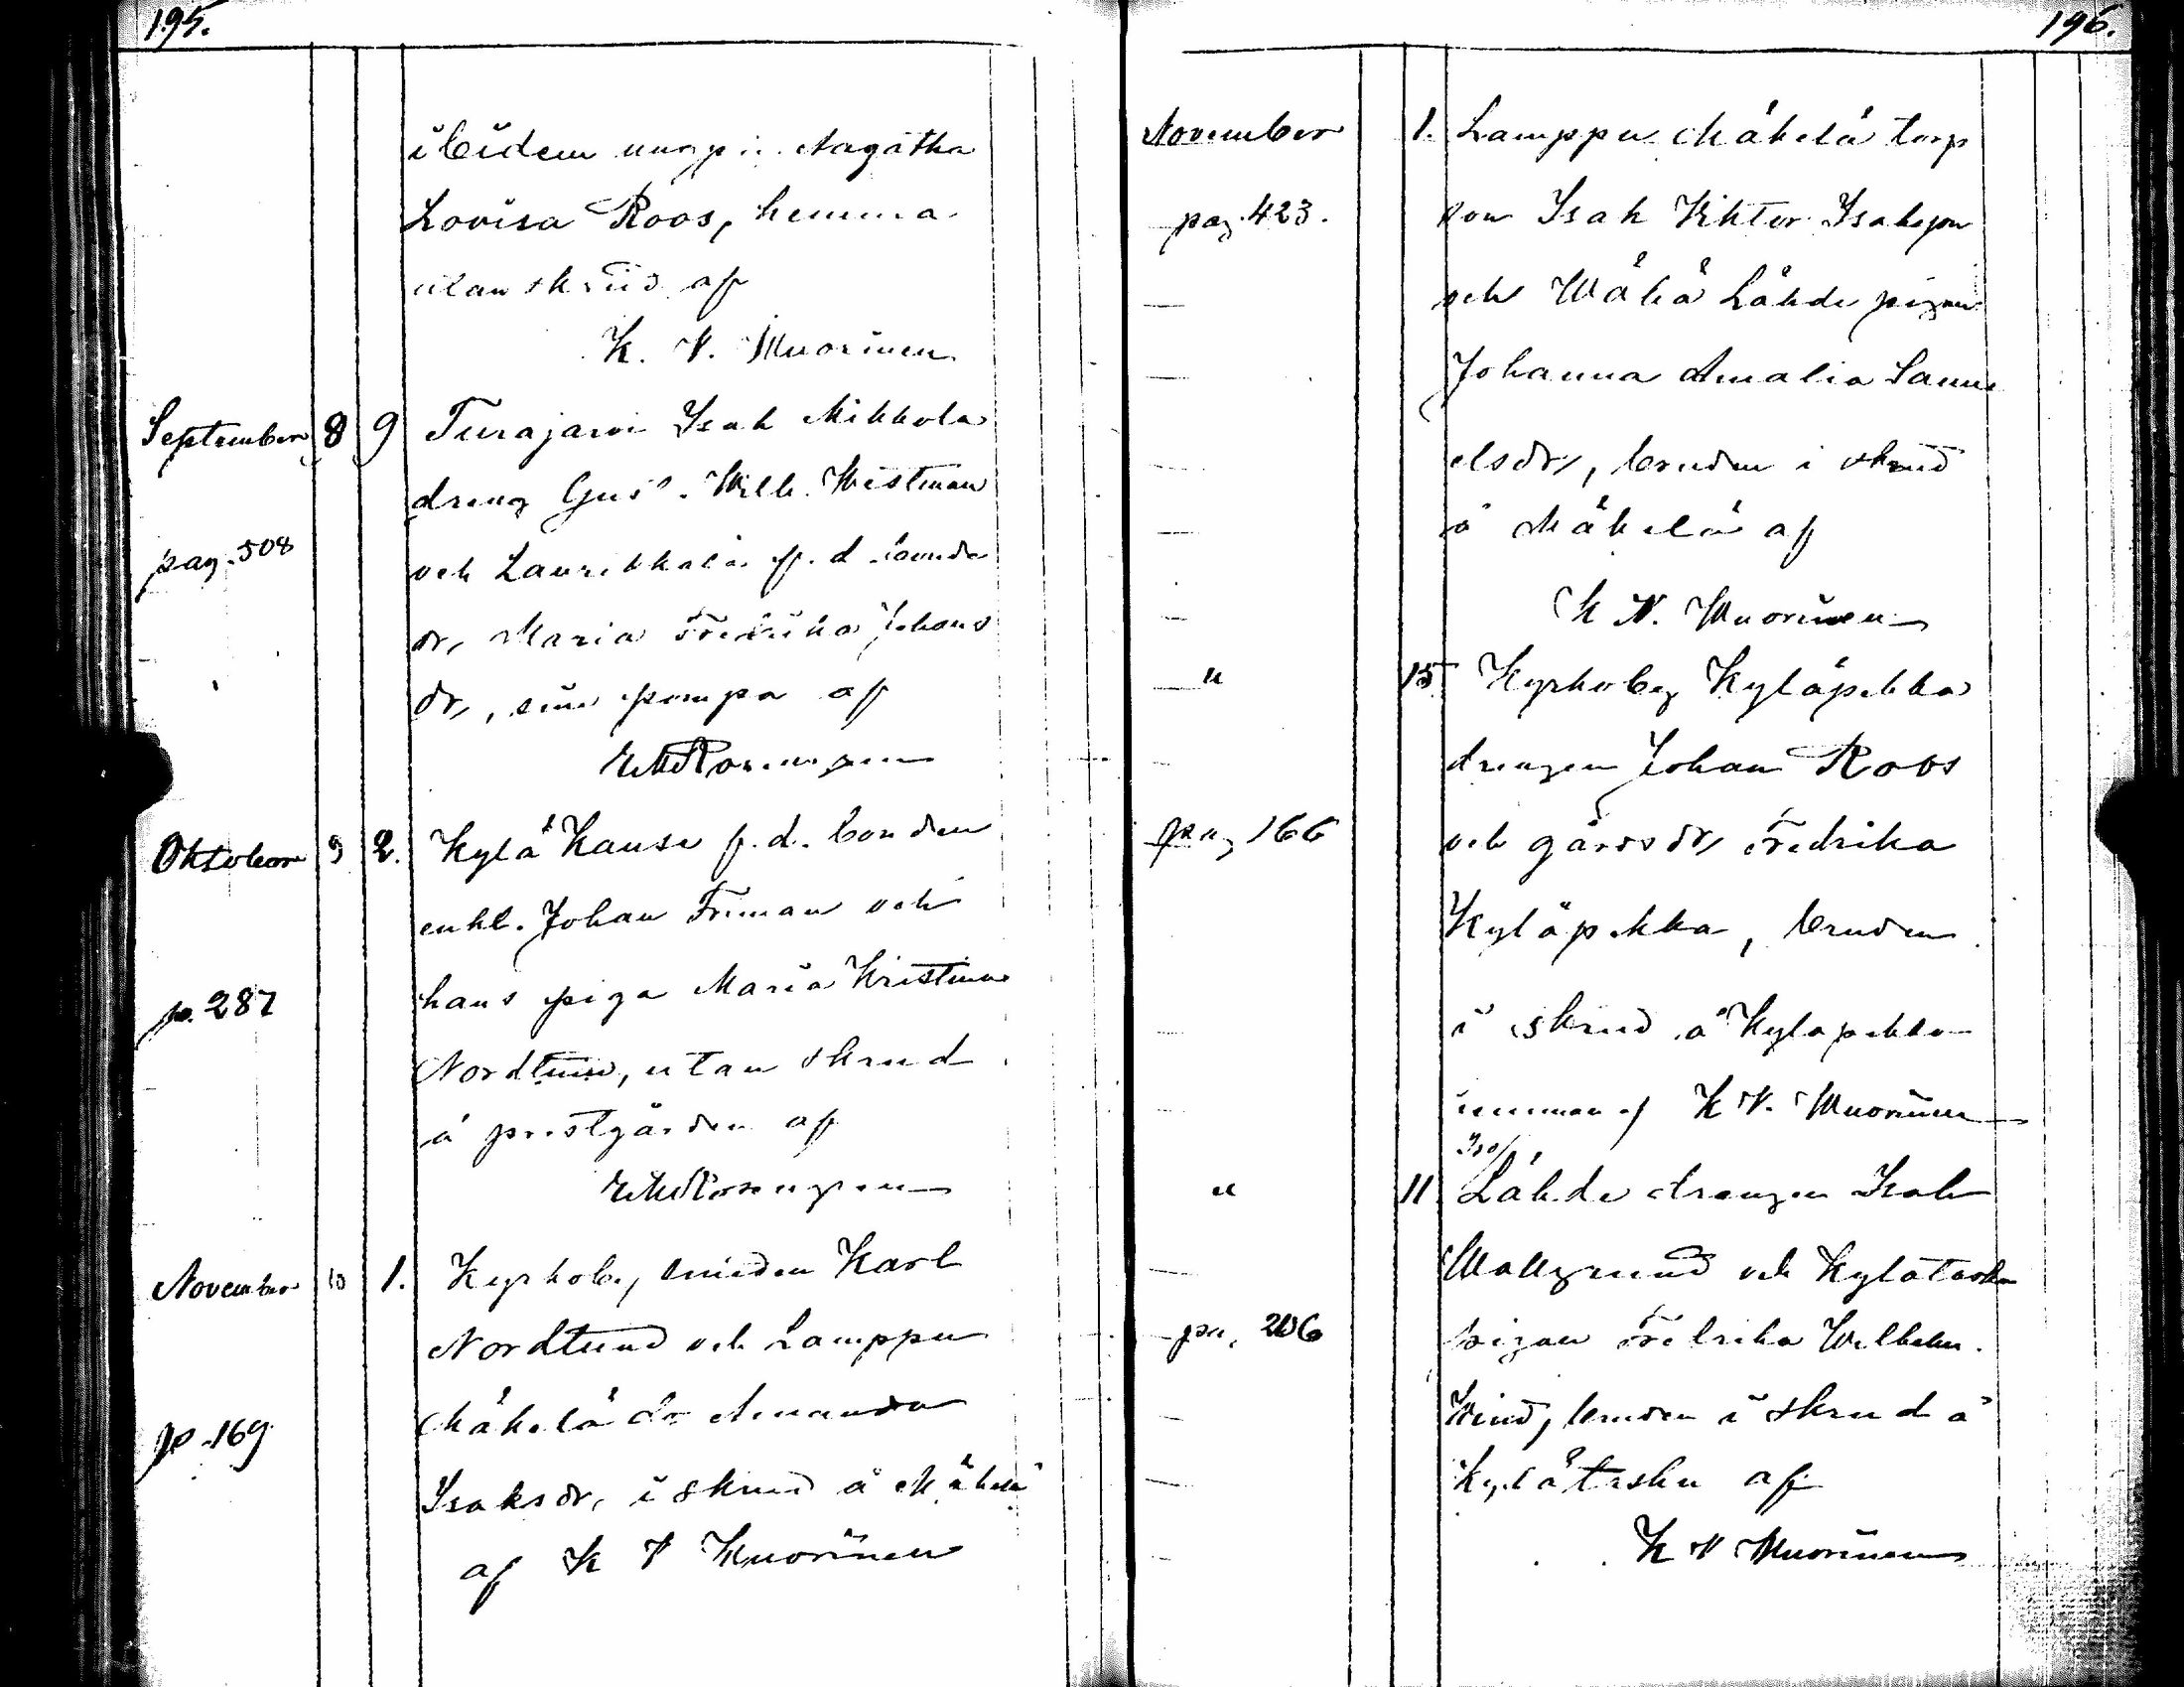 195.
ibidem ungpig. Aagatha
Lovisa Roos, hemma
utan skrud af
K. N. Wuorinen
September 8 9 Turajarvi Isak Mikkola
dreng Gust. Wilh. Westman
pag. 508 och Laurikkala f. d. bonde
dr, Maria Fredrika Johans
dr, sine pompa af
Rosengren
Oktober 9 2. Kylä Kause f. d. bonden
enkl. Johan Friman och
p. 287 hans piga Maria Kristina
Nordlund, utan skrud
å prestgården af
Rosengren
November 10 1. Kyrkoby smeden Karl
Nordlund och Lamppu
Mäkelä dr Amanda
p. 169 Isaksdr, i skrud å Mäkelä
af K N Wuorinen
196.
November 1. Lamppu Mäkelä torp
pag. 423. son Isak Viktor Isaksson
och Wähä Lähde pigan
Johanna Amalia Samu
elsdr, bruden i skrud
å Mäkelä af
K N. Wuorinen
" 15 Kyrkoby Kyläpekka
drengen Johan Roos
pag 166 och gårdsdr, Fredrika
Kyläpekka, bruden
i skrud å Kyläpekka
K N. Wuorinen
Iso/
" 11. Lähde drengen Isak
Wallgrund och Kylätasku
pa, 206 pigan Fredrika Wilhelm.
Wind, bruden i skrud å
Kylätasku af
K N Wuorinen